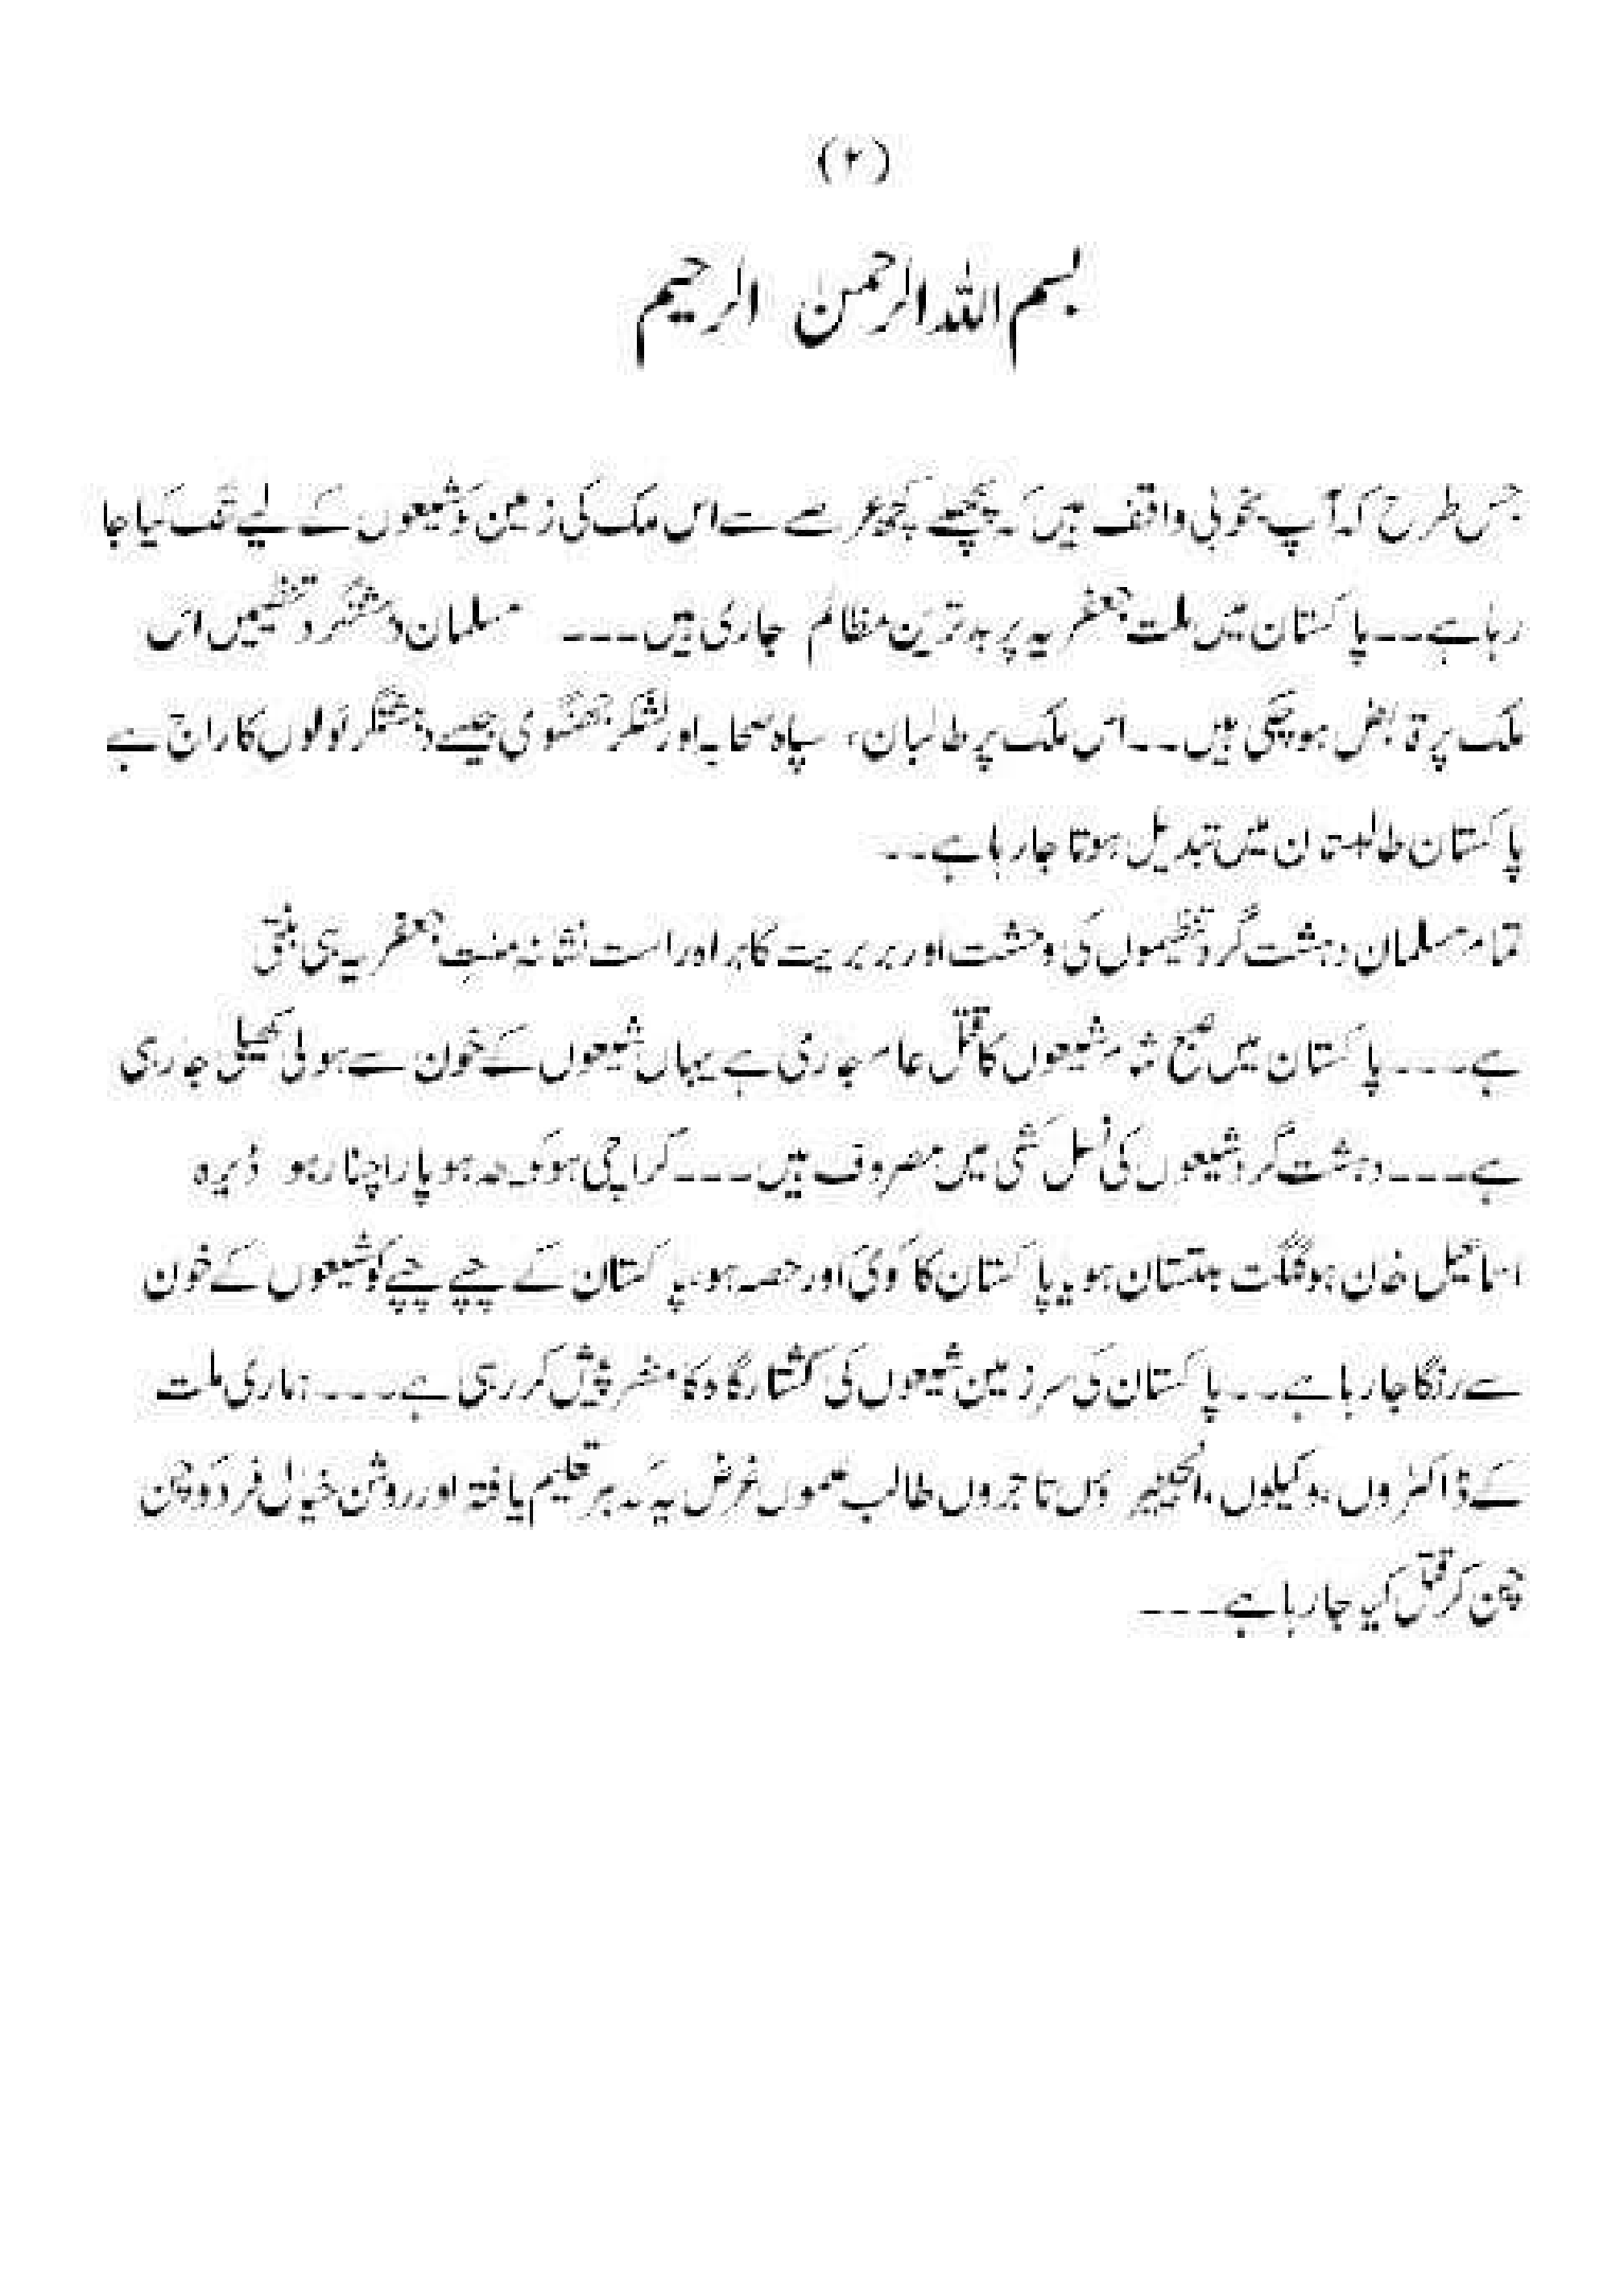 (۲)
بسم اللہ الرحمن الرحیم
جس طرح کہ آپ بخوبی واقف ہیں کہ پچھلے کچھ عرصے سے اس ملک کی زمین کو شیعوں کے لیے تنگ کیا جا
رہا ہے۔۔پاکستان میں ملت جعفریہ پر بدترین مظالم جاری ہیں۔۔۔ مسلمان دہشتگرد تنظیمیں اس
ملک پر قابض ہو چکی ہیں۔۔اس ملک پر طالبان، سپاہ صحابہ اور لشکر جھنگوی جیسے دہشتگر ٹولوں کا راج ہے
پاکستان طالبستان میں تبدیل ہوتا جا رہا ہے۔۔
تمام مسلمان دہشت گرد تنظیموں کی وحشت اور بربریت کا براہ راست نشانہ ملت جعفریہ ہی بنتی
ہے۔۔۔پاکستان میں صبح شام شیعوں کا قتل عام جاری ہے یہاں شیعوں کے خون سے ہولی کھیلی جا رہی
ہے۔۔۔دہشت گرد شیعوں کی نسل کشی میں مصروف ہیں۔۔۔کراچی ہو کوئٹہ ہو پاراچنار ہو ڈیرہ
اسماعیل خان ہو گلگت بلتستان ہو یا پاکستان کا کوئی اور حصہ ہو، پاکستان کے چپے چپے کو شیعوں کے خون
سے رنگا جا رہا ہے۔۔پاکستان کی سرزمین شیعوں کی کشتارگاہ کا منظر پیش کر رہی ہے۔۔۔ہماری ملت
کے ڈاکٹروں، وکیلوں، انجینیروں تاجروں طالب علموں غرض یہ کہ ہر تعلیم یافتہ اور روشن خیال فرد کو چن
چن کر قتل کیا جا رہا ہے۔۔۔